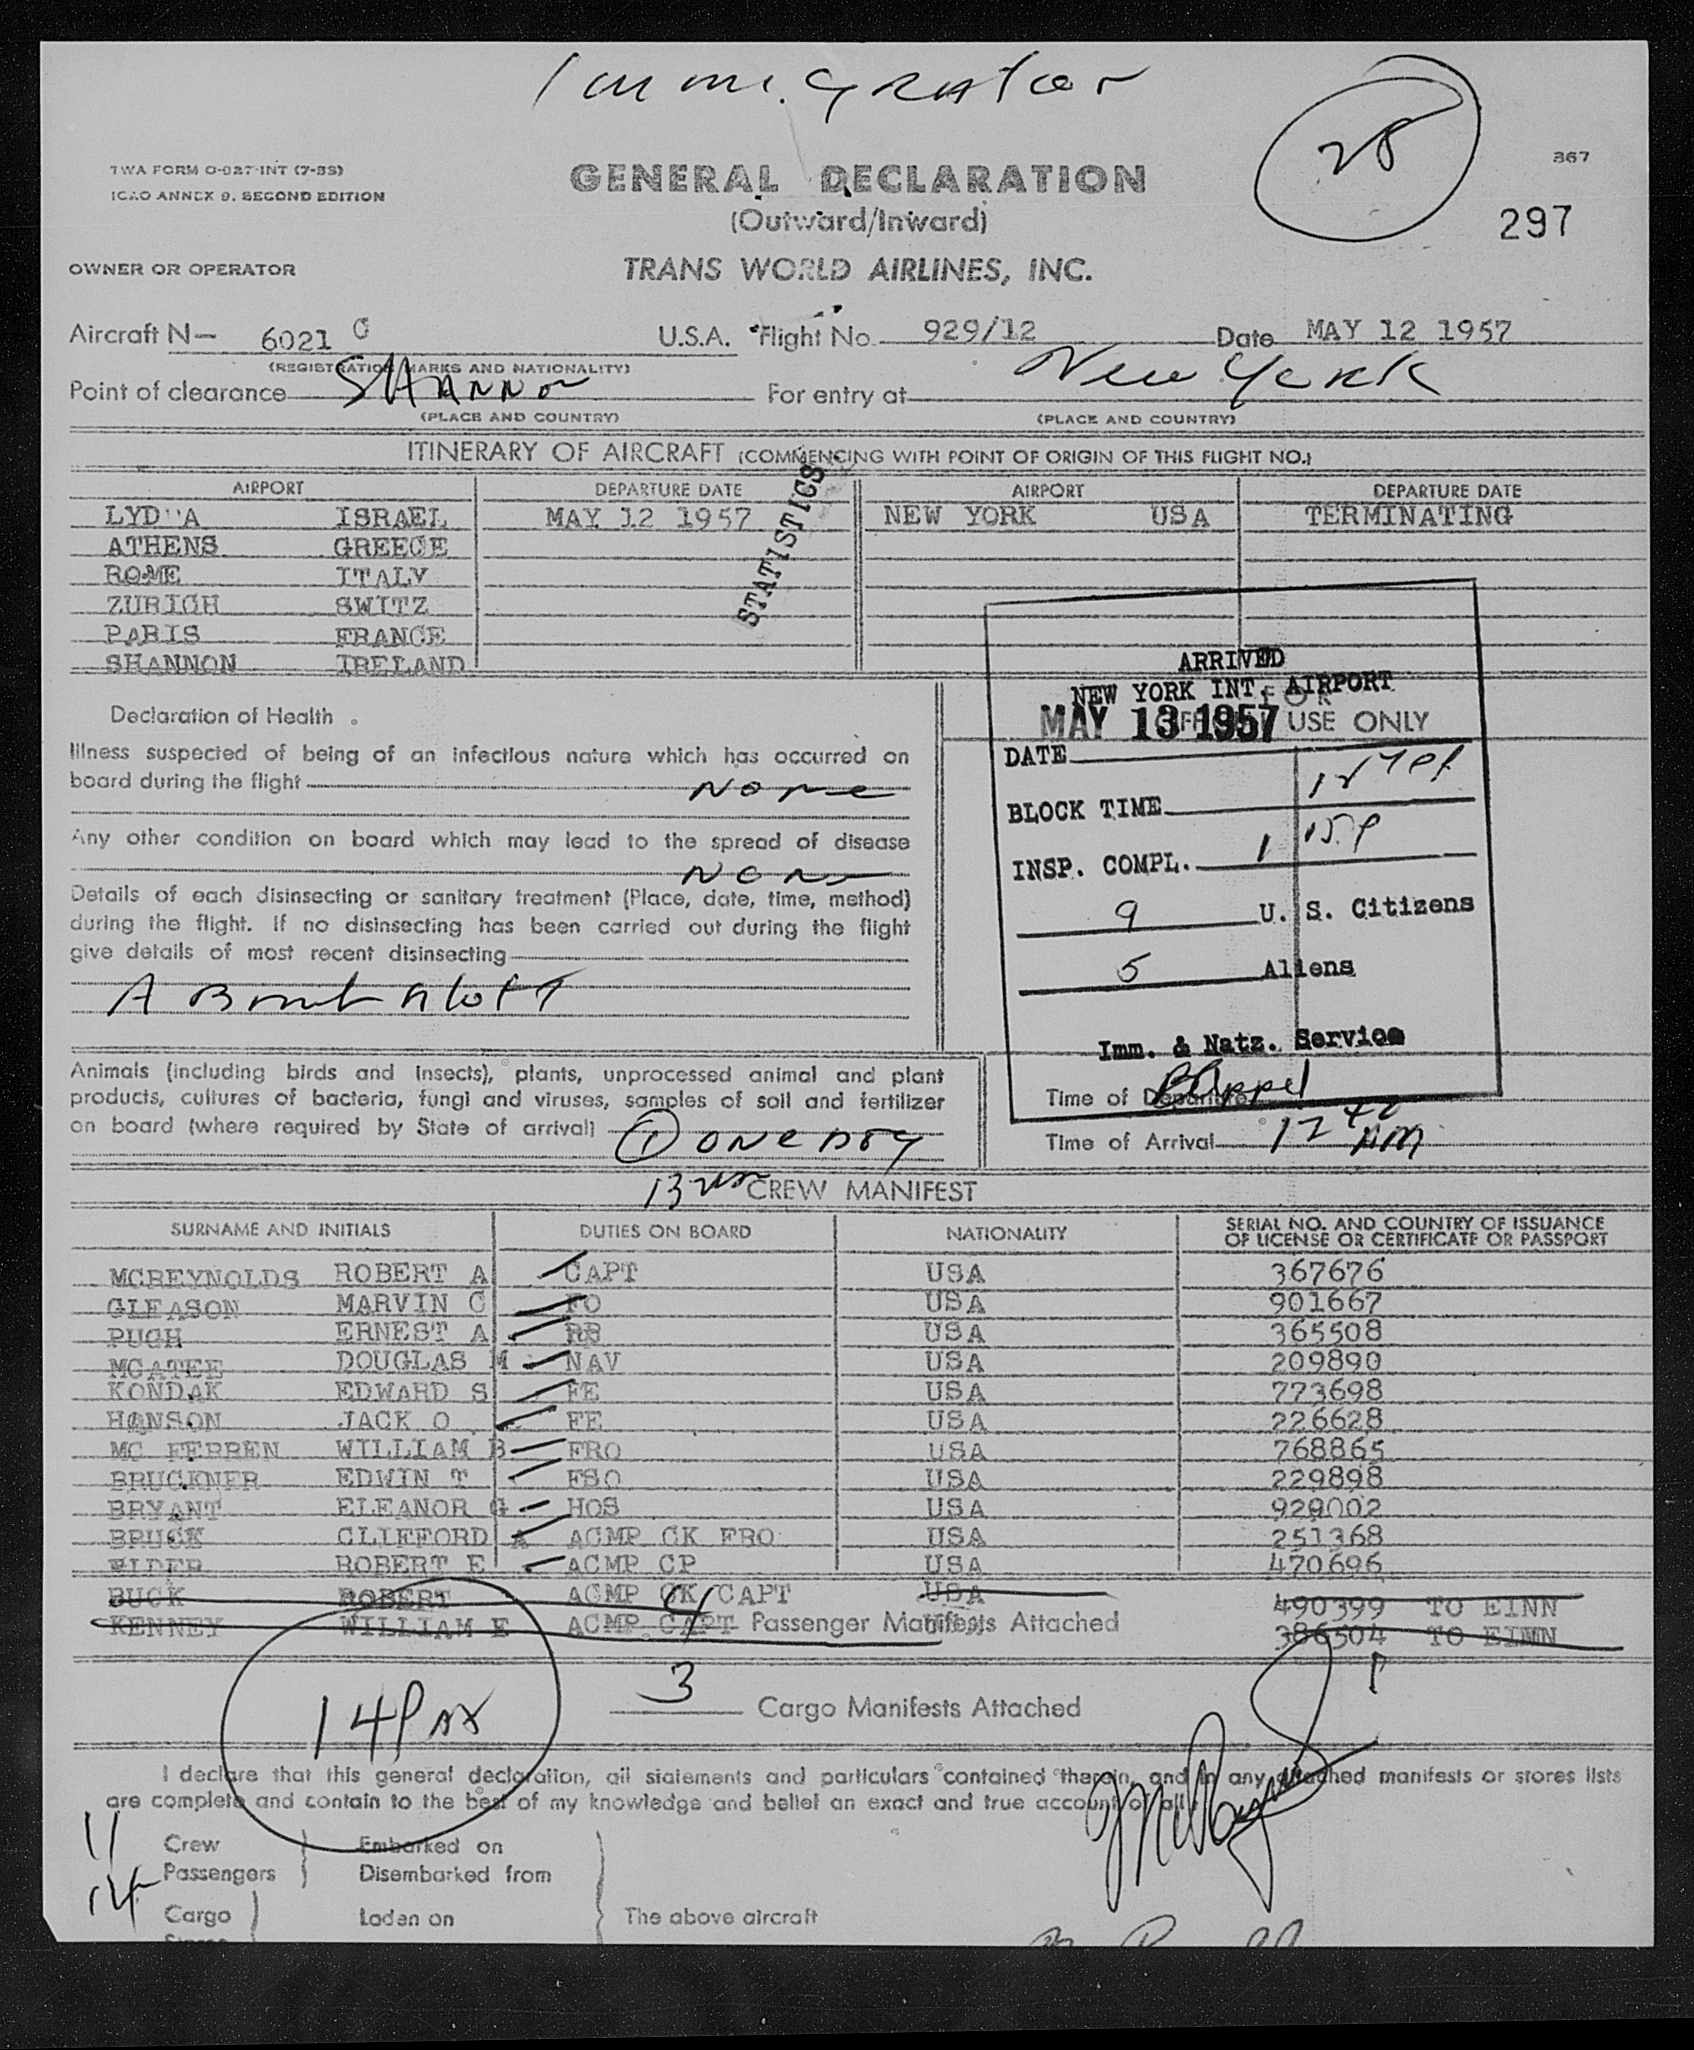 Immigration
28
TWA FORM O-027-INT (7-55)
ICAO ANNEX 9, SECOND EDITION
GENERAL DECLARATION
367
(Outward/Inward)
297
OWNER OR OPERATOR
TRANS WORLD AIRLINES, INC.
Aircraft N— 6021 C U.S.A. Flight No. 929/12 Date MAY 12 1957
(REGISTRATION MARKS AND NATIONALITY)
Point of clearance SHANNON For entry at New York
(PLACE AND COUNTRY) (PLACE AND COUNTRY)
ITINERARY OF AIRCRAFT (COMMENCING WITH POINT OF ORIGIN OF THIS FLIGHT NO.)
AIRPORT DEPARTURE DATE AIRPORT DEPARTURE DATE
LYDDA ISRAEL MAY 12 1957 NEW YORK USA TERMINATING
ATHENS GREECE
ROME ITALY
ZURICH SWITZ
PARIS FRANCE
SHANNON IRELAND
STATISTICS
ARRIVED
NEW YORK INT. AIRPORT
FOR
OFFICIAL USE ONLY
MAY 13 1957
DATE
BLOCK TIME
INSP. COMPL. 1 15 P
9 U. S. Citizens
5 Aliens
Imm. & Natz. Service
Declaration of Health
Illness suspected of being of an infectious nature which has occurred on
board during the flight None
Any other condition on board which may lead to the spread of disease
None
Details of each disinsecting or sanitary treatment (Place, date, time, method)
during the flight. If no disinsecting has been carried out during the flight
give details of most recent disinsecting
A Bomb Aloft
Animals (including birds and insects), plants, unprocessed animal and plant
products, cultures of bacteria, fungi and viruses, samples of soil and fertilizer
on board (where required by State of arrival) 1 one Dog
Time of Departure
Time of Arrival 12 42 PM
CREW MANIFEST
SURNAME AND INITIALS DUTIES ON BOARD NATIONALITY SERIAL NO. AND COUNTRY OF ISSUANCE
OF LICENSE OR CERTIFICATE OR PASSPORT
MCREYNOLDS ROBERT A CAPT USA 367676
GLEASON MARVIN C FO USA 901667
PUGH ERNEST A USA 365508
MCATEE DOUGLAS M NAV USA 209890
KONDAK EDWARD S FE USA 773698
HANSON JACK O FE USA 226628
MC FERREN WILLIAM B FRO USA 768865
BRUCKNER EDWIN T FSO USA 229898
BRYANT ELEANOR G HOS USA 929002
BRUCK CLIFFORD A ACMP CK FRO USA 251368
ELDER ROBERT E ACMP CP USA 470696
BUCK ROBERT ACMP CK CAPT USA 490399 TO EINN
KENNEY WILLIAM E ACMP CAPT USA 386504 TO EINN
4 Passenger Manifests Attached
3 Cargo Manifests Attached
14 Pax
I declare that this general declaration, all statements and particulars contained therein, and in any attached manifests or stores lists
are complete and contain to the best of my knowledge and belief an exact and true account of all
11 Crew Embarked on
14 Passengers Disembarked from
Cargo Laden on The above aircraft
Stores